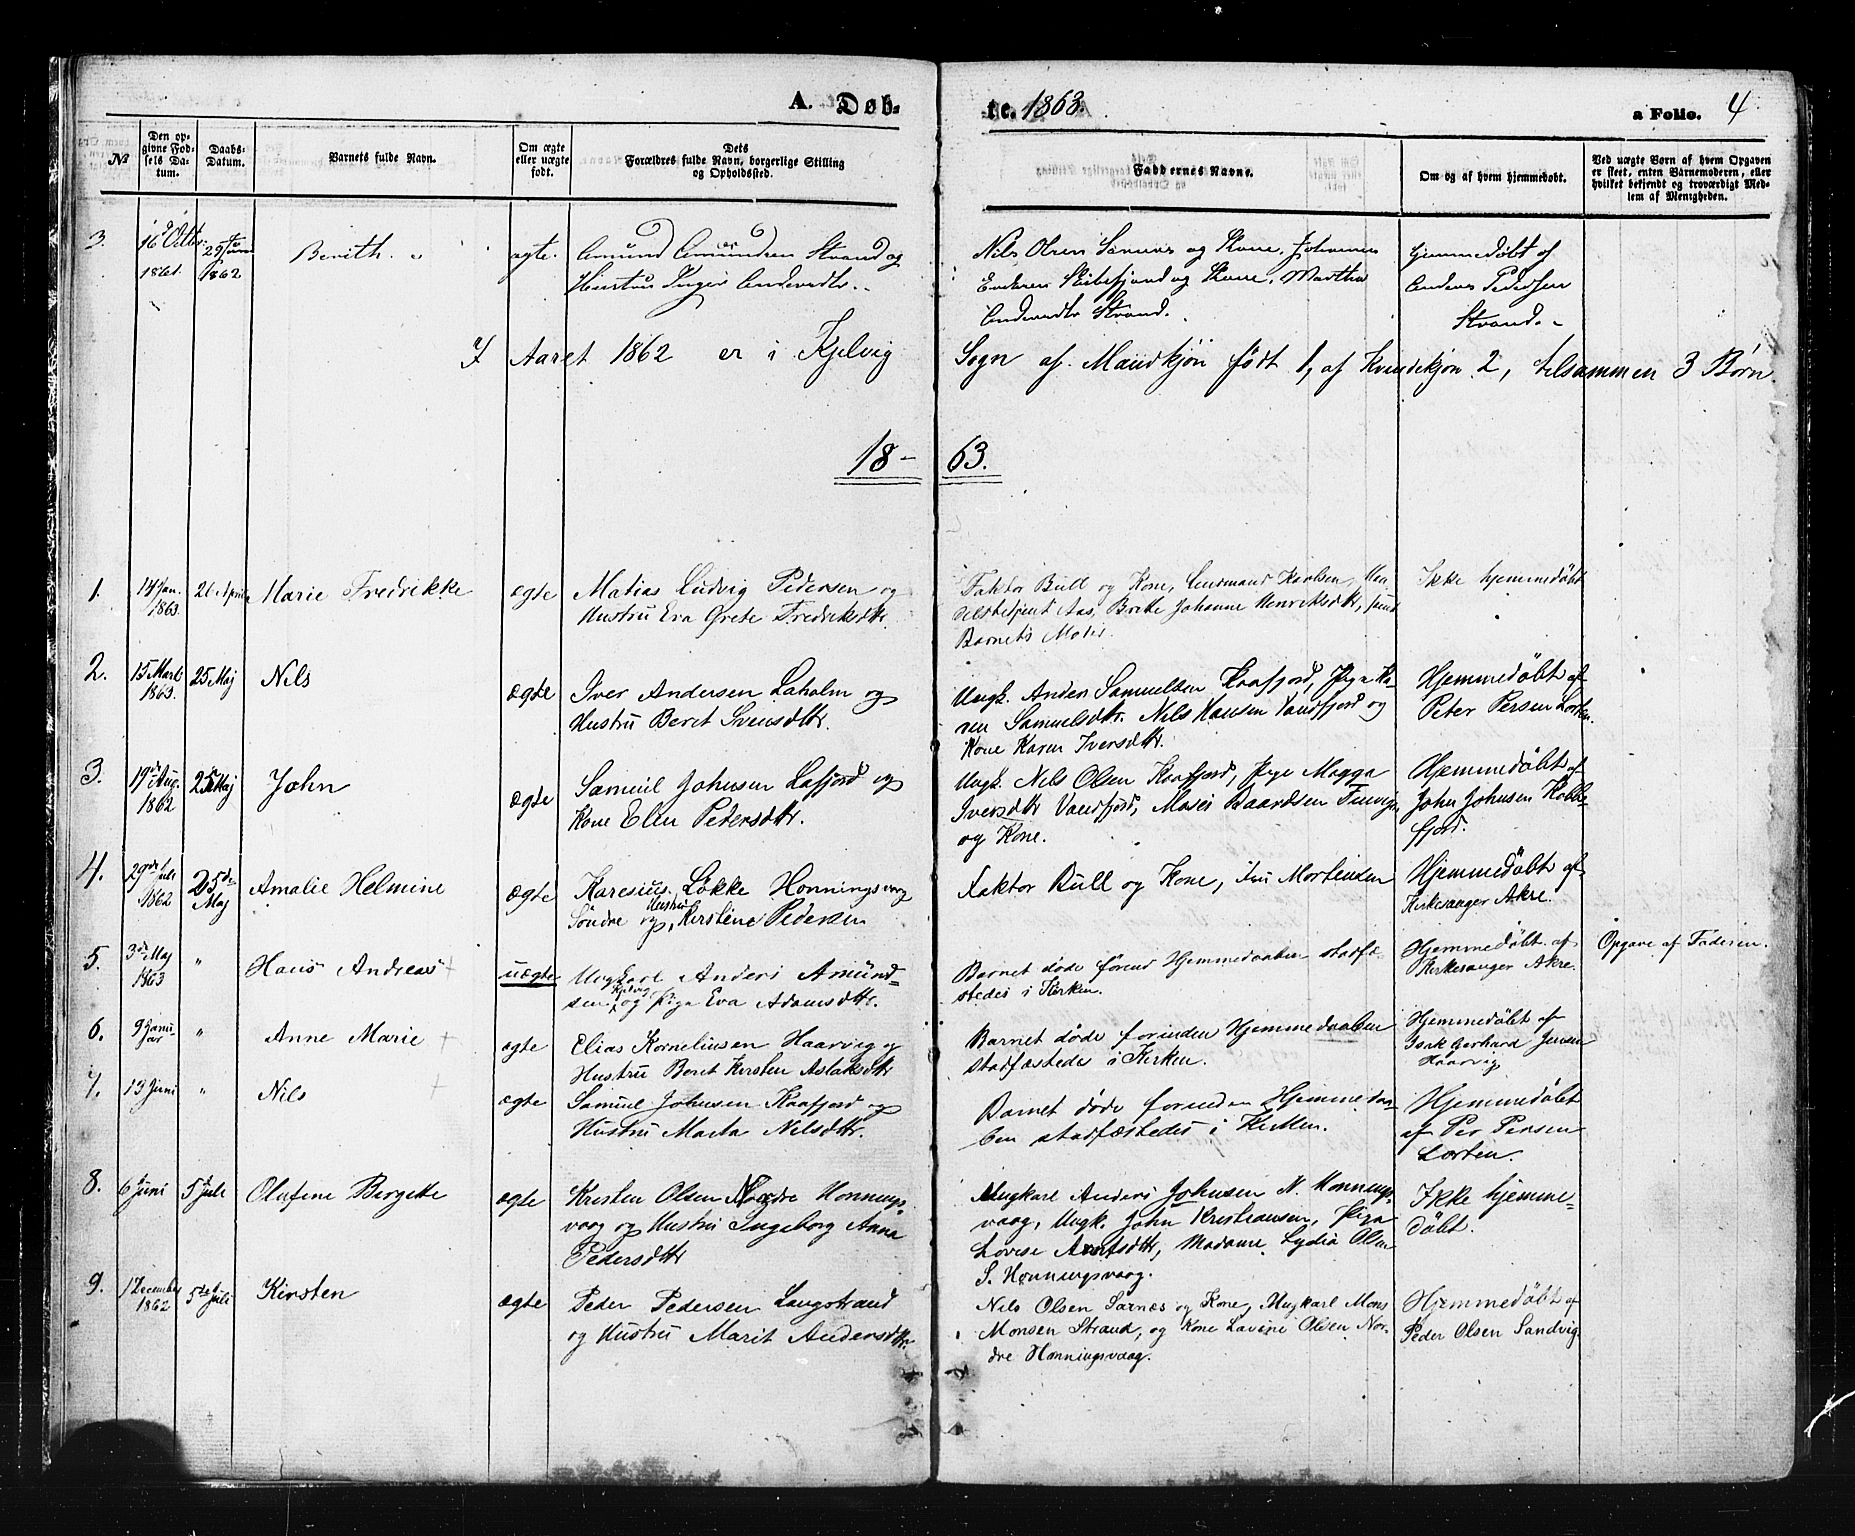 A. Døb-
te. 1863.
a Folio. 4
№
Den op-
givne Fød-
sels Da-
tum.
Daabs-
Datum.
Barnets fulde Navn.
Om ægte
eller uægte
født.
Dets
Forældres fulde Navn, borgerlige Stilling
og Opholdssted.
Faddernes Navne.
Om og af hvem hjemmedøbt.
Ved uægte Børn af hvem Opgaven
er skeet, enten Barnemoderen, eller
hvilket bekjendt og troværdigt Med-
lem af Menigheden.
3.
16 Octbr.
1861.
29 Juni
1862
Berith
ægte.
Amund Amundsen Strand og
Hustru Inger
Nils Olsen Sarnes og Kone, Johannes
og Kone, Martha
Strand.
hjemmedøbt af
Anders Pedersen
Strand.
I Aaret 1862 er i Kjelvig Sogn af Mandkjøn født 1, af Kvindekjøn 2, tilsammen 3 Børn.
18-63.
1.
14 Jan.
1863.
26 April
Marie Fredrikke
ægte
Matias Ludvig Pedersen og
Hustru Eva Grete Fredriksdtr.
Faktor Bull og Kone, Lensmand Karlsen, Han-
delsbetjent Aas, Berite Johanne Henriksdtr, samt
Barnets Moder.
Ikke hjemmedøbt
2.
15 Marts
1863.
25 Maj
Nils
ægte
Iver Andersen Laholm og
Hustru Beret Svensdtr.
Ungk. Anders Samuelsen Kaafjord, Pige Ka-
ren Samuelsdtr. Nils Hansen Vandfjord og
Kone Karen Iversdtr.
Hjemmedøbt af
Peter Persen Lorten.
3.
19de Aug.
1862
25 Maj
John
ægte
Samuel Johnsen Lafjord og
Kone Elen Pedersdtr.
Ungk. Nils Olsen Kaafjord, Pige Magga
Iversdtr Vandfjord, Moses Baardsen Finvigen
og Kone.
Hjemmedøbt af
John Johnsen Kobbe-
fjord.
4.
29de Juli
1862
25de
Maj
Amalie Helmine
ægte
Karesius Løkke Honningsvaag
Søndre og Hustru Kerstine Pedersen
Faktor Bull og Kone, Mortensen
Hjemmedøbt af
Kirkesanger Akre.
5.
3de Maj
1863
"
Hans Andreas +
uægte
Ungkarl Anders Amund-
sen Kjelvig og Pige Eva Adamsdtr.
Barnet døde førend Hjemmedaaben stadfæ-
stedes i Kirken.
Hjemmedøbt af
Kirkesanger Akre.
Opgave af Faderen.
6.
9 Janu-
ar
"
Anne Marie +
ægte
Elias Korneliusen Haarvig og
Hustru Beret Kirsten Aslaksdtr
Barnet døde forinden Hjemmedaaben
stadfæstedes i Kirken.
Hjemmedøbt af
Isak Gerhard Jensen
Haarvig
7.
13 Juni
"
Nils +
ægte
Samuel Johnsen Kaafjord og
Hustru Marta Nilsdtr.
Barnet døde forinden Hjemmedaa-
ben stadfæstedes i Kirken.
Hjemmedøbt
af Per Persen
Lorten.
8.
6 Juni
5 Juli
Olafine Bergitte
ægte
Kristen Olsen Nordre Honnings-
vaag og Hustru Ingeborg Anna
Pedersdtr
Ungkarl Anders Johnsen N. Honnings-
vaag, Ungk. John Kristiansen, Pige
Lovise Arntsdtr, Madame Lydia Olsen
S. Honningsvaag.
Ikke hjemme-
døbt.
9.
1 December
1862
5te Juli
Kirsten
ægte
Peder Pedersen Langstrand
og Hustru Marit Andersdtr.
Nils Olsen Sarnes og Kone, Ungkarl Mons
Monsen Strand, og Kone Lavine Olsen Nor-
dre Honningsvaag.
Hjemmedøbt af
Peder Olsen Sandvig